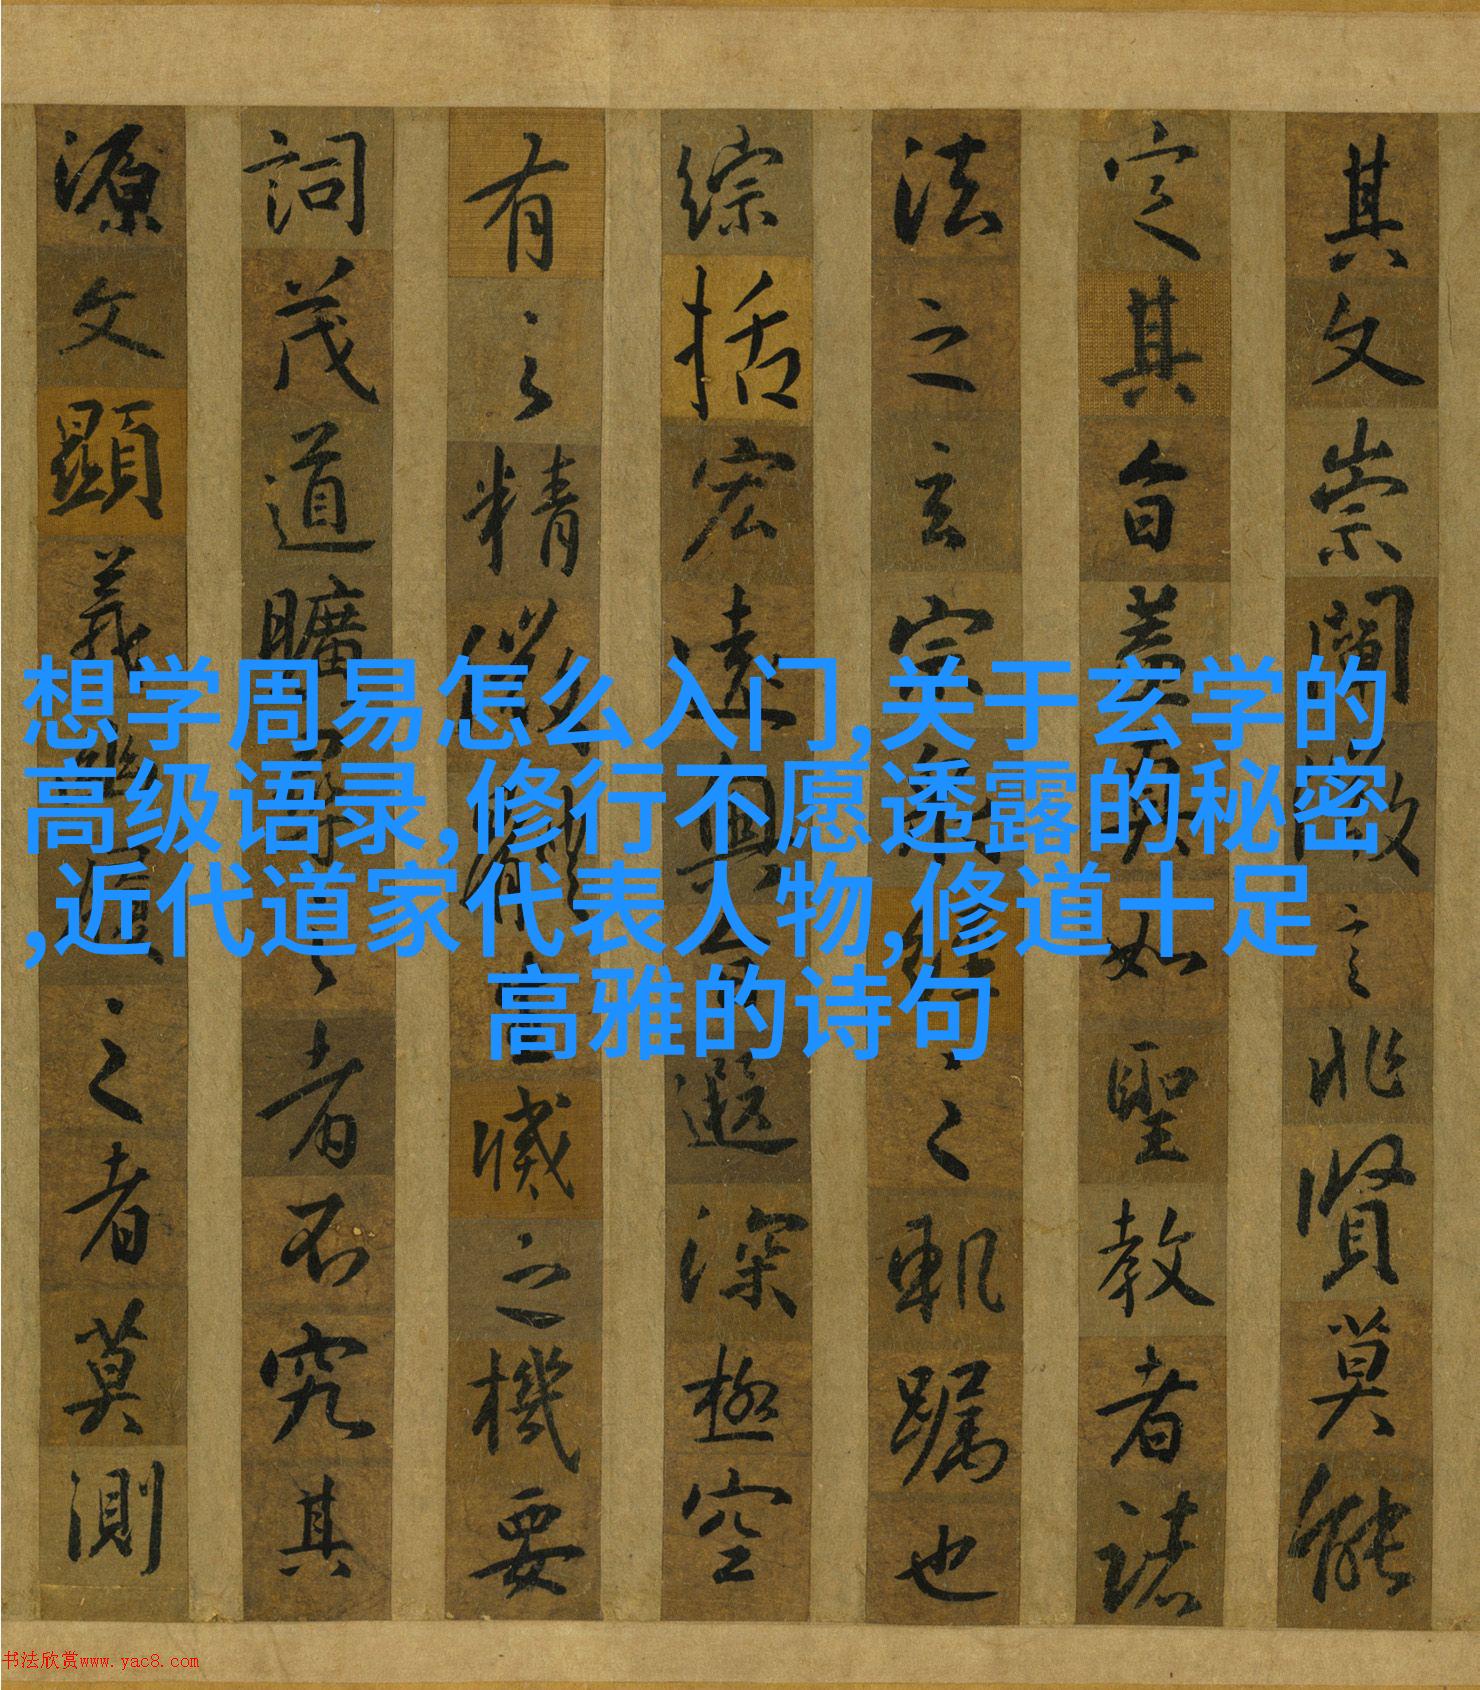 其文崇闡微言非賢莫能
定其旨蓋真如聖教者諸
法之玄宗眾經之軌躅也
綜括宏遠奧旨遐深極空
有之精微體生滅之機要
詞茂道曠尋之者不究其
源文顯義幽履之者莫測
想学周易怎么入门,关于玄学的
高级语录,修行不愿透露的秘密
,近代道家代表人物,修道十足
高雅的诗句
书法欣赏www.yac8.com